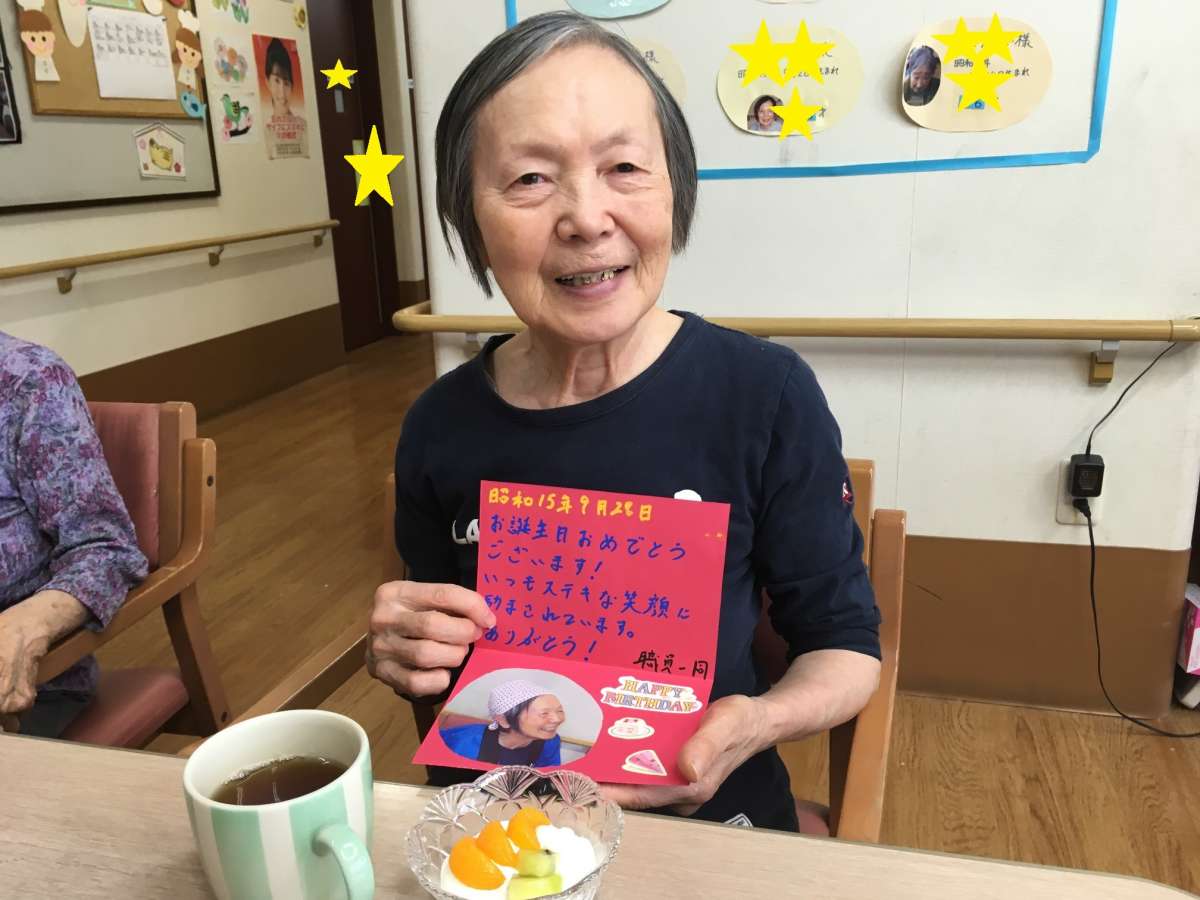 様
昭和
まれ
まれ
昭和15年9月28日
お誕生日おめでとう
ございます!
いつもステキな笑顔に
励まされています。
ありがとう!
職員一同
HAPPY
BIRTHDAY